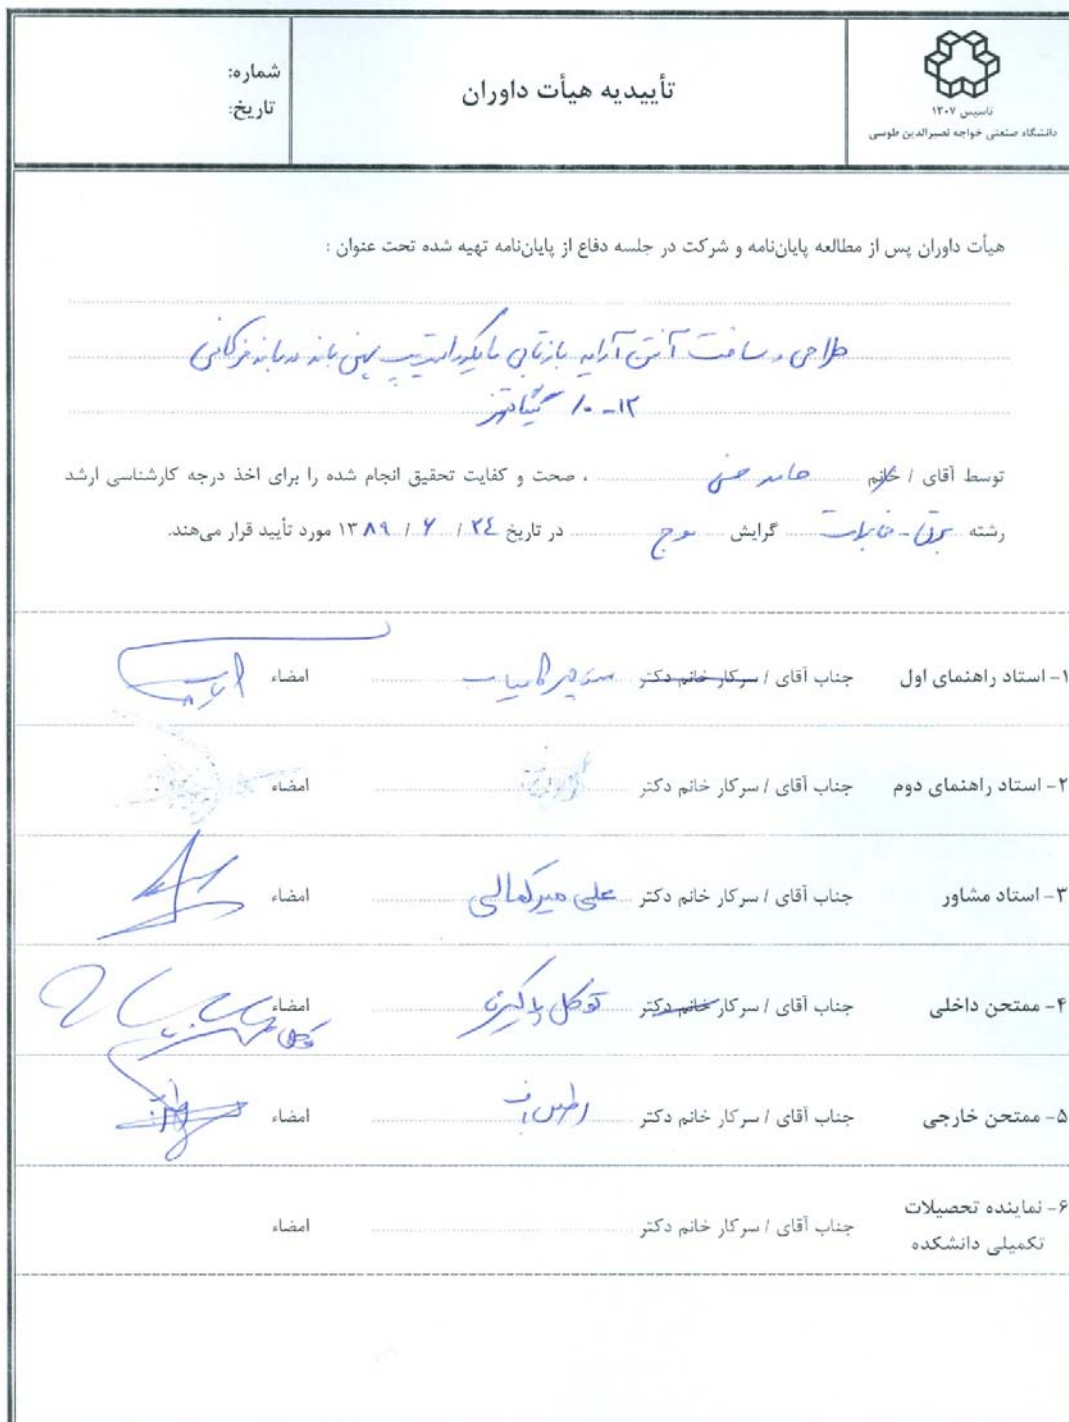 تاسیس ۱۳۰۷
دانشگاه صنعتی خواجه نصیرالدین طوسی
تأییدیه هیأت داوران
شماره:
تاریخ:
هیأت داوران پس از مطالعه پایان‌نامه و شرکت در جلسه دفاع از پایان‌نامه تهیه شده تحت عنوان :
طراحی و ساخت آنتن آرایه بازتابی مایکرواستریپ پهن باند در باند فرکانسی
۱۰-۱۲ گیگاهرتز
توسط آقای / خانم حامد حسنی ، صحت و کفایت تحقیق انجام شده را برای اخذ درجه کارشناسی ارشد
رشته برق - مخابرات گرایش موج در تاریخ ۲۴ / ۶ / ۱۳۸۹ مورد تأیید قرار می‌هند.
۱- استاد راهنمای اول جناب آقای / سرکار خانم دکتر منوچهر کامیاب امضاء
۲- استاد راهنمای دوم جناب آقای / سرکار خانم دکتر امضاء
۳- استاد مشاور جناب آقای / سرکار خانم دکتر علی میرکمالی امضاء
۴- ممتحن داخلی جناب آقای / سرکار خانم دکتر توکل پاکیزه امضاء
۵- ممتحن خارجی جناب آقای / سرکار خانم دکتر امضاء
۶- نماینده تحصیلات تکمیلی دانشکده جناب آقای / سرکار خانم دکتر امضاء